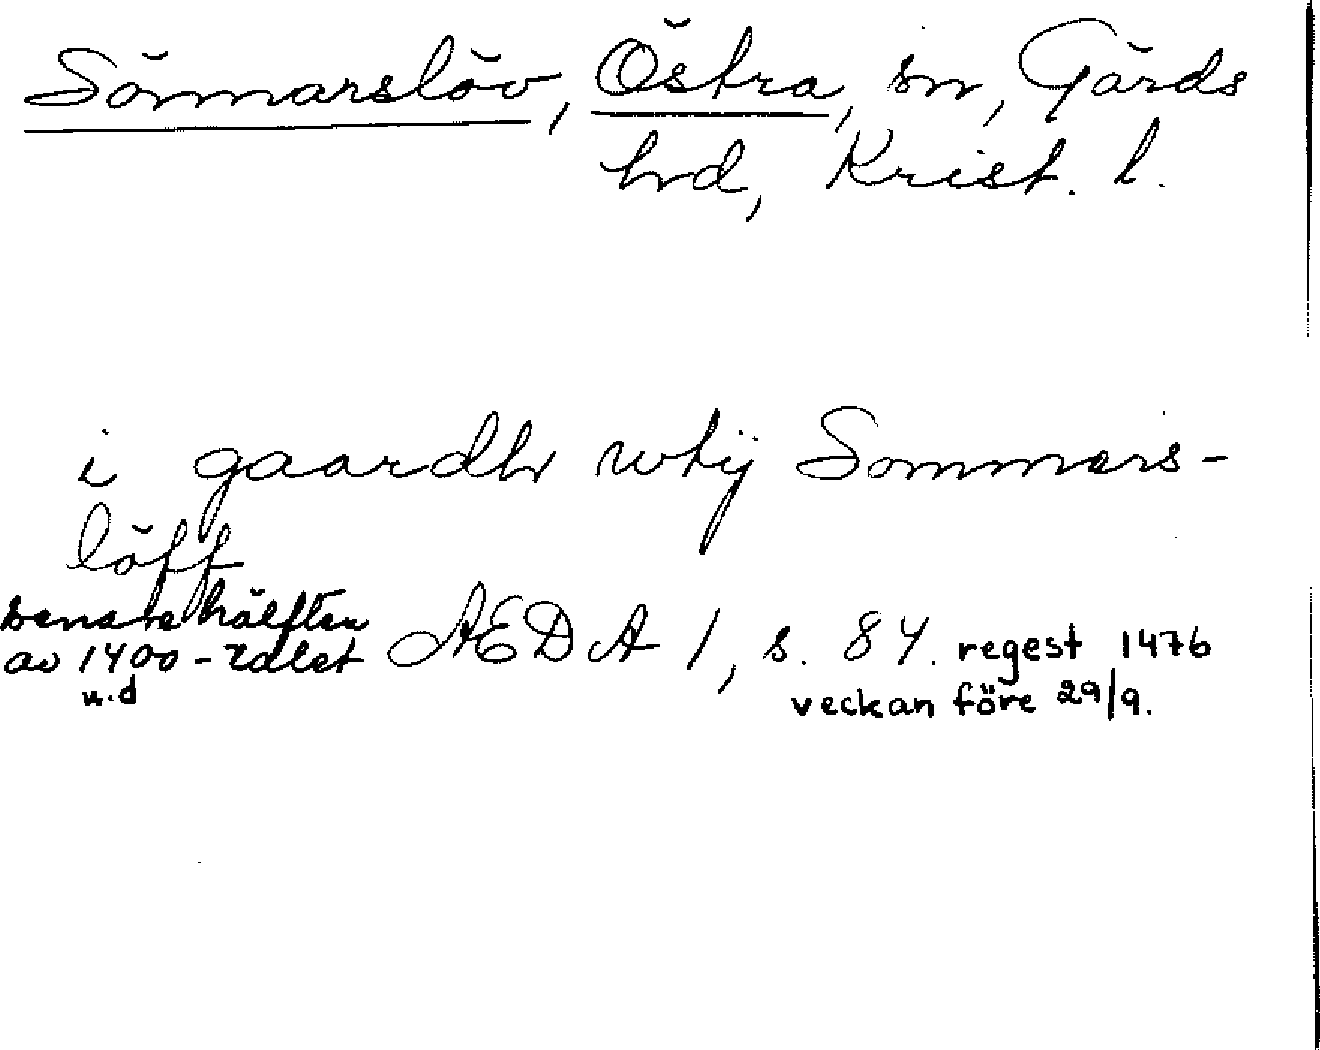 Sönnarslöv, Östra, sn, Gärds
hrd, Krist. l.
i gaardh wtij Sommers-
löff
senare hälften
av 1400-talet AEDA 1, s. 84. regest 1476
u.d veckan före 29/9.